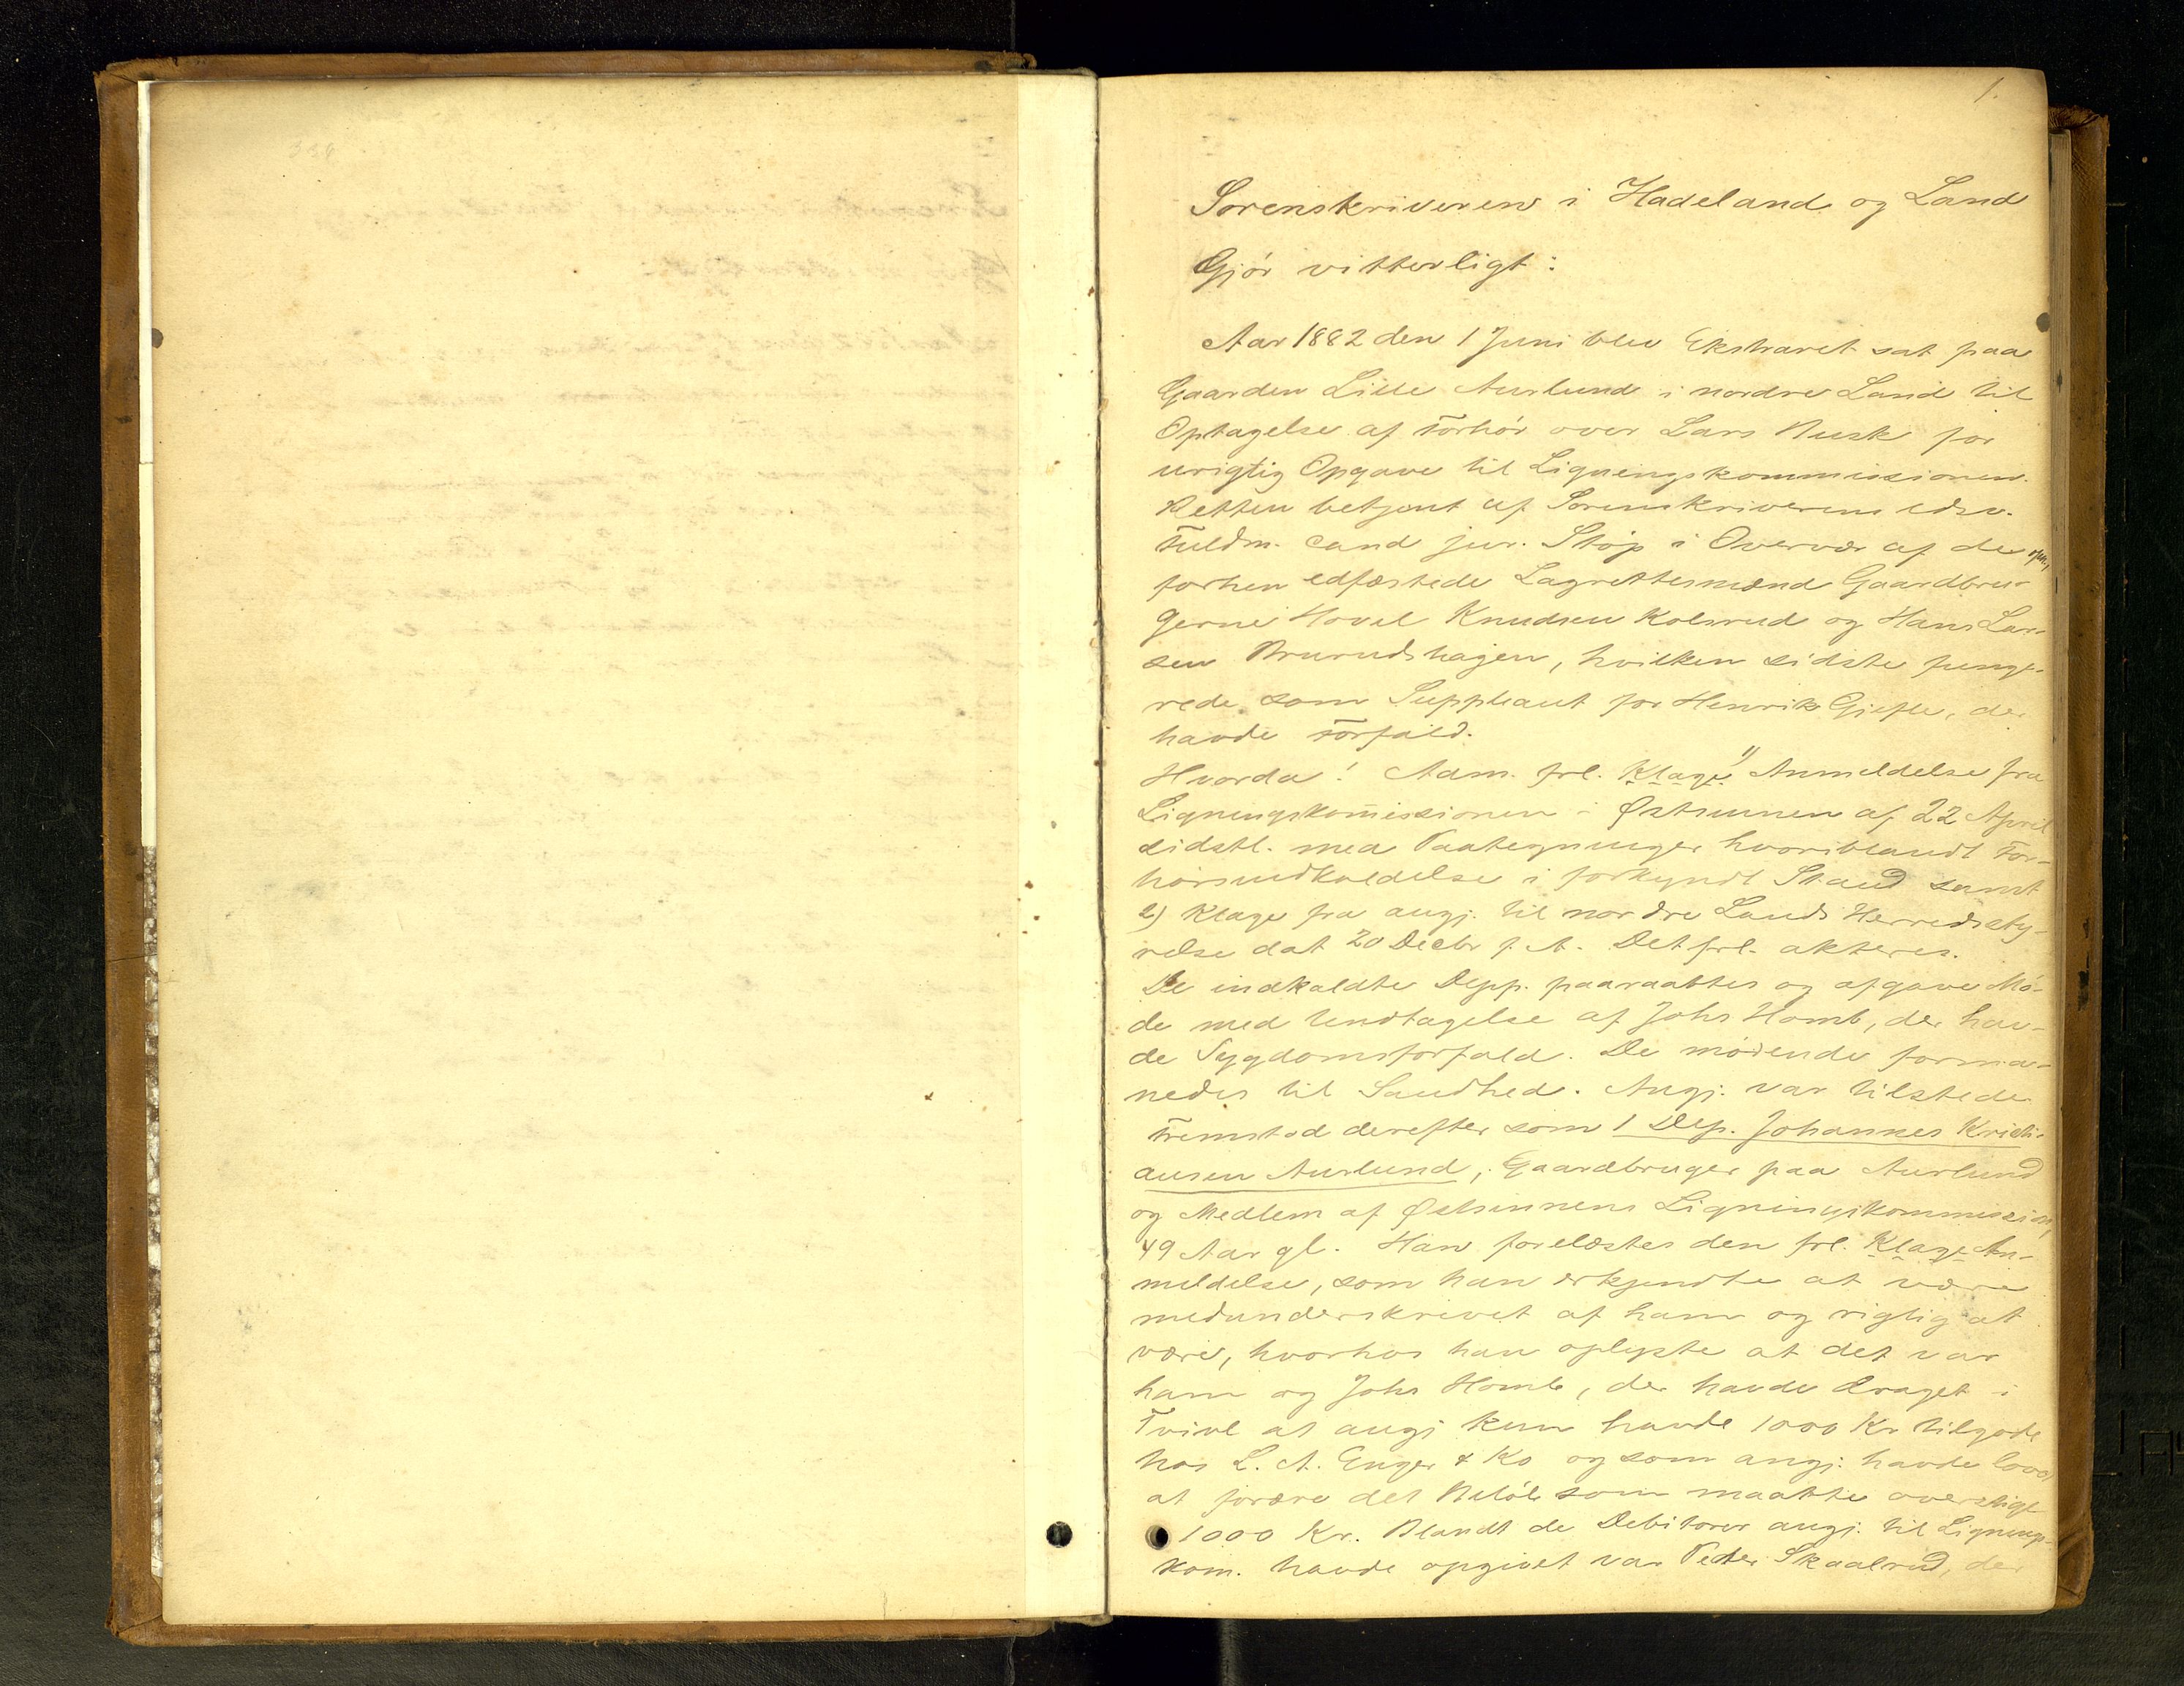 1.
Sorenskriveren i Hadeland og Land
Gjór vitterligt:
Aar 1882 den 1 Juni blev Ekstraret sat paa
Gaarden Lille Aurlund i nordre Land til
Optagelse af Forhór over Lars Busk for
urigtig Opgave til Ligningskommissionen.
Retten betjent af Sorenskriverens edsv.
Fuldm. Cand jur. Stóp i Overvær af de opn,
forhen edfæstede Lagrettesmænd Gaardbru-
gerne Hovel Knudsen Kolsrud og Hans Lar-
sen Bruruds hagen, hvilken sidste funge-
rede som Suppleant for Henrik Gjefle, der
havde Forfald.
Hvorda! Adm. frl. Klage" Anmeldelse fra
Ligningskom̅issionen i Østsinnen af 22 April
sidstl. med Paategninger hvoriblandt For-
hórsindkaldelse i forkyndt Stand samt
2) Klage fra angj. til nordre Lands Herredssty-
relse dat 20 Decbr f. A. Det frl. akteres.
De indkaldte Depp. paaraabtes og afgave Mó-
de med Undtagelse af Johs Homb, der hav-
de Sygdomsforfald. De módende forma-
nedes til Sandhed. Angj. var tilstede
Fremstod derefter som 1 Dep. Johannes Kristi-
ansen Aurlund, Gaardbruger paa Aurlund
og Medlem af Østsinnens Ligningskommission,
49 Aar gl. Han forelæstes den frl. Klage An-
meldelse, som han erkjendte at være
medunderskrevet af ham og rigtig at
være, hvorhos han oplyste at det var
ham og Johs Homb, der havde draget i
Tvivl at angj kun havde 1000 Kr tilgode
hos L. A. Enger & Ko og som angj. havde lovet
at forære det Belób som maatte overstige
1000 Kr. Blandt de Debitorer angj. til Lignings-
kom. havde opgivet var Peder Skaalrud, der